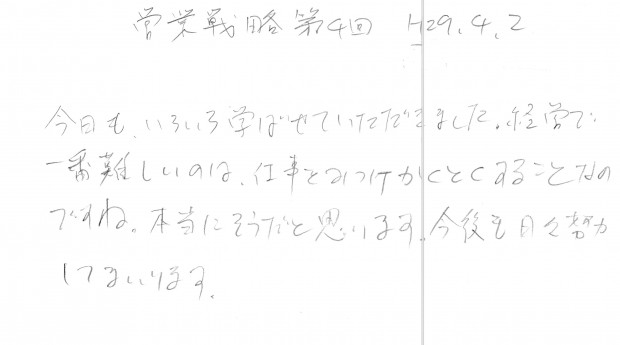 営業戦略第4回 H29.4.2
今日も、いろいろ学ばせていただきました。経営で
一番難しいのは、仕事をみつけかくとくすることなの
ですね。本当にそうだと思います。今後も日々努力
してまいります。